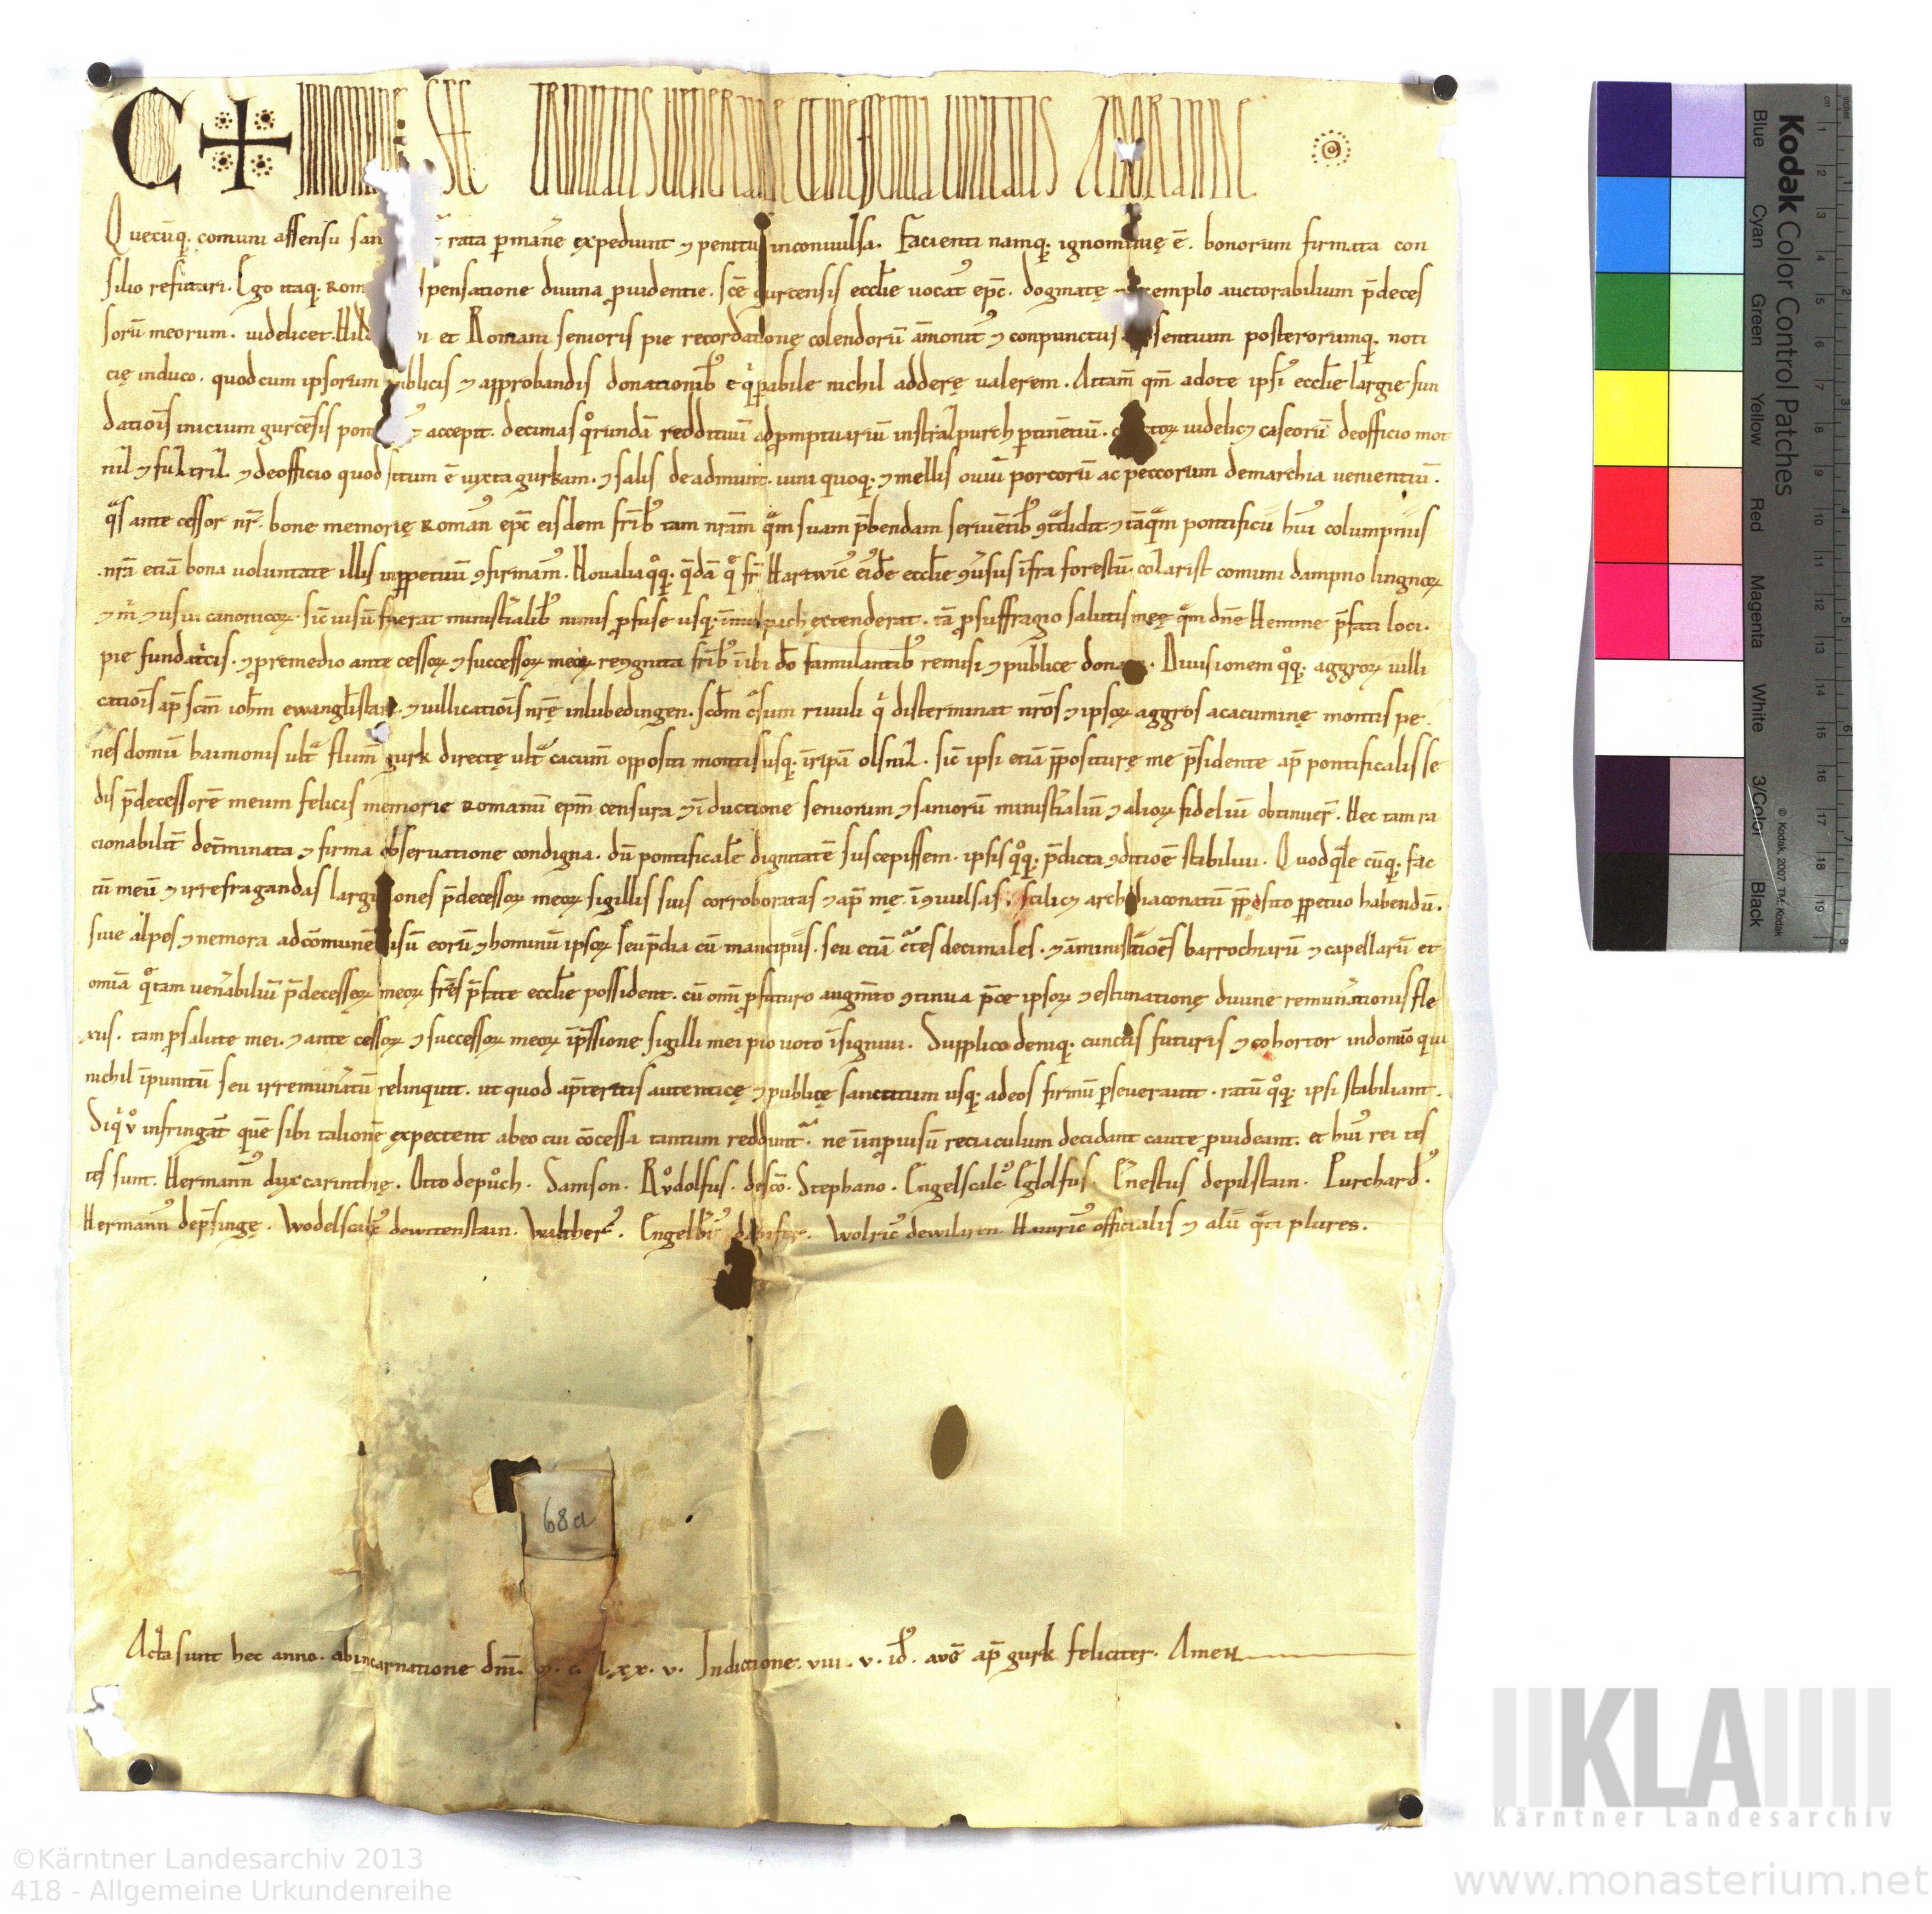 C + IN NOMINE SCE TRINITATIS VENERANDE ET IN ESSENTIA UNITATIS ADORANDE
Quecūq. comuni assensu san rata pmane expediunt ⁊ penitus inconuulsa. Facienti namq. ignominię ē. bonorum firmata con
silio refutari. Ego itaq. Rom spensatione diuina puidentie. scē gurcensis ecclie uocat epc. dogmatę emplo auctorabilium pdeces
sorū meorum. uidelicet. Hild et Romani senioris pie recordationę colendorū amonit ⁊ conpunctus. sentium posterorumq. noti
cię induco. quod cum ipsorum publicis ⁊ approbandis donationib nichil adderę ualerem. Attam qm adote ipsi ecclie largie fun
datiois inicium gurcēsis pon accepit. decimas qrundā reddituū ad pmptuariū instralpurch ptinētiū. uidelic⁊ caseorū deofficio mot
nil ⁊ fultril ⁊ deofficio quod situm ē iuxta gurkam. ⁊ salis de admunt. uini quoq. ⁊ mellis ouiū porcorū ac peccorum demarchia uenientiū.
qs ante cessor nr. bone memorię Roman epc eisdem frib tam nram qm suam pbendam seruētib ⁊ tāqm pontificii hui columpniis
nrā etiā bona uoluntate illis inppetuū 9firmam. Noualia qq. qdā q fr Hartwic eide ecclie 9usus infra forestū. colarist comuni dampno lingnor
⁊ usui canonicor. sic uisū fuerat ministialib nimis pfuse usq. extenderat. tā psuffragio salutis meę qm dne Hemme pfati loci.
pie fundatcis. ⁊ premedio ante cessor ⁊ successor meor frib ibi do famulantib remisi ⁊ publice dona. Diuisionem qq. aggror uilli
catiois ap scm iohm ewanglistam ⁊ uillicatiois nrę inlubedingen. scdm csum riuuli q disterminat nros ⁊ ipsor aggros acacuminę montis pe
nes domū baimonis ult flum gurk directę ult cacum oppositi montis usq. inripā olsnil. sic ipsi etiā ppositurę me psidente ap pontificalis se
dis pdecessorē meum felicis memorie Romanū epm censura ⁊ iductione seniorum ⁊ saniorū ministialiū ⁊ alior fideliū obtinuer. Hec tam ra
cionabilit detminata ⁊ firma obseruatione condigna. dū pontificale dignitatē suscepissem. ipsis qq. pdicta 9ditioē stabiliui. Quodqle cūq. fac
tū meū ⁊ irrefragandas largitiones pdecessor meor sigillis suis corroboratas ⁊ ap mę i9uulsas. scilic⁊ archidiaconatū pposito ppetuo habendū.
siue alpes ⁊ nemora ad comunē usū eorū ⁊ hominū ipsor seu pdia cū mancipiis. seu etiā ctes decimales. ⁊ aministatioēs barrochiarū ⁊ capellarū et
omia qtam uenabiliū pdecessor meor fres pfate ecclie possident. cū omi pfuturo augmto 9tinua pce ipsor ⁊ estimationę diuine remunationis fle
xus. tam psalute mei. ⁊ ante cessor ⁊ successor meor ipssione sigilli mei pio uoto isigniui. Supplico deniq. cunctis futuris ⁊ cohortor indomīo qui
nichil ipunitū seu irremunatū relinquit. ut quod apteritis autenticę ⁊ publicę sanctitum usq. adeos firmū pseuerauit. ratū qq. ipsi stabiliant.
Siq u infringat quē sibi talionē expectent abeo cui cōcessa tantum reddunt. ne inprouisū reciaculum decidant caute puideant. et hui rei tes
tes sunt. Hermann dux carinthię. Otto depuͦch. Samson. Ruͦdolfus. de scō. Stephano. Engelscalc. Eglolfus. Ernestus depilstain. Purchard.
Hermann depsingę. Wodelscalc dewitenstain. Walther. Engelbt dapifer. Wolric dewiliren Hainric officialis ⁊ alii qti plures.
68a
Acta sunt hec anno. ab incarnatione dni. M. C. lxx. v. Indictione. viii. v. id. aug ap gurk feliciter. Amen
Kodak Color Control Patches
Blue Cyan Green Yellow Red Magenta White 3/Color Black
© Kodak, 2007 TM: Kodak
KLA
Kärntner Landesarchiv
©Kärntner Landesarchiv 2013
418 - Allgemeine Urkundenreihe
www.monasterium.net